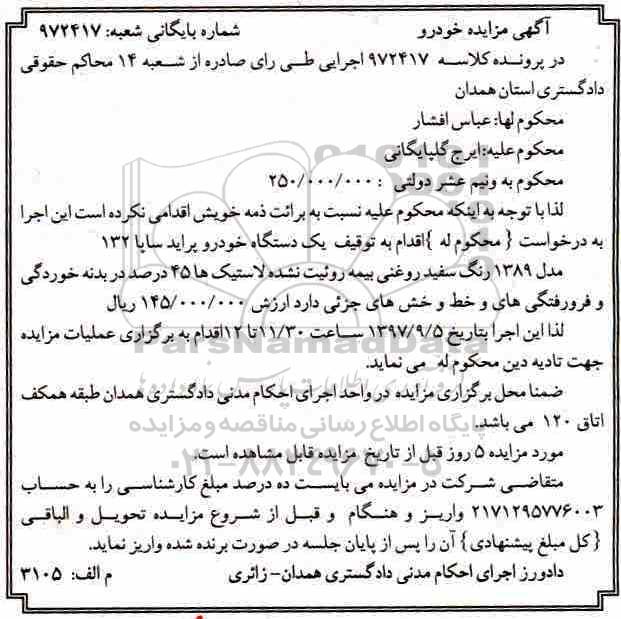 آگهی مزایده خودرو شماره بایگانی شعبه: ۹۷۲۴۱۷
در پرونده کلاسه ۹۷۲۴۱۷ اجرایی طی رای صادره از شعبه ۱۴ محاکم حقوقی
دادگستری استان همدان
محکوم لها: عباس افشار
محکوم علیه: ایرج گلپایگانی
محکوم به ونیم عشر دولتی : ۲۵۰/۰۰۰/۰۰۰
لذا با توجه به اینکه محکوم علیه نسبت به برائت ذمه خویش اقدامی نکرده است این اجرا
به درخواست { محکوم له } اقدام به توقیف یک دستگاه خودرو پراید سایپا ۱۳۲
مدل ۱۳۸۹ رنگ سفید روغنی بیمه روئیت نشده لاستیک ها ۴۵ درصد در بدنه خوردگی
و فرورفتگی های و خط و خش های جزئی دارد ارزش ۱۴۵/۰۰۰/۰۰۰ ریال
لذا این اجرا بتاریخ ۱۳۹۷/۹/۵ ساعت ۱۱/۳۰ تا ۱۲ اقدام به برگزاری عملیات مزایده
جهت تادیه دین محکوم له می نماید.
ضمنا محل برگزاری مزایده در واحد اجرای احکام مدنی دادگستری همدان طبقه همکف
اتاق ۱۲۰ می باشد.
مورد مزایده ۵ روز قبل از تاریخ مزایده قابل مشاهده است.
متقاضی شرکت در مزایده می بایست ده درصد مبلغ کارشناسی را به حساب
۲۱۷۱۲۹۵۷۷۶۰۰۳ واریز و هنگام و قبل از شروع مزایده تحویل و الباقی
{کل مبلغ پیشنهادی} آن را پس از پایان جلسه در صورت برنده شده واریز نماید.
دادورز اجرای احکام مدنی دادگستری همدان- زائری م الف: ۳۱۰۵
ParsNamadData
پایگاه اطلاع رسانی مناقصه و مزایده